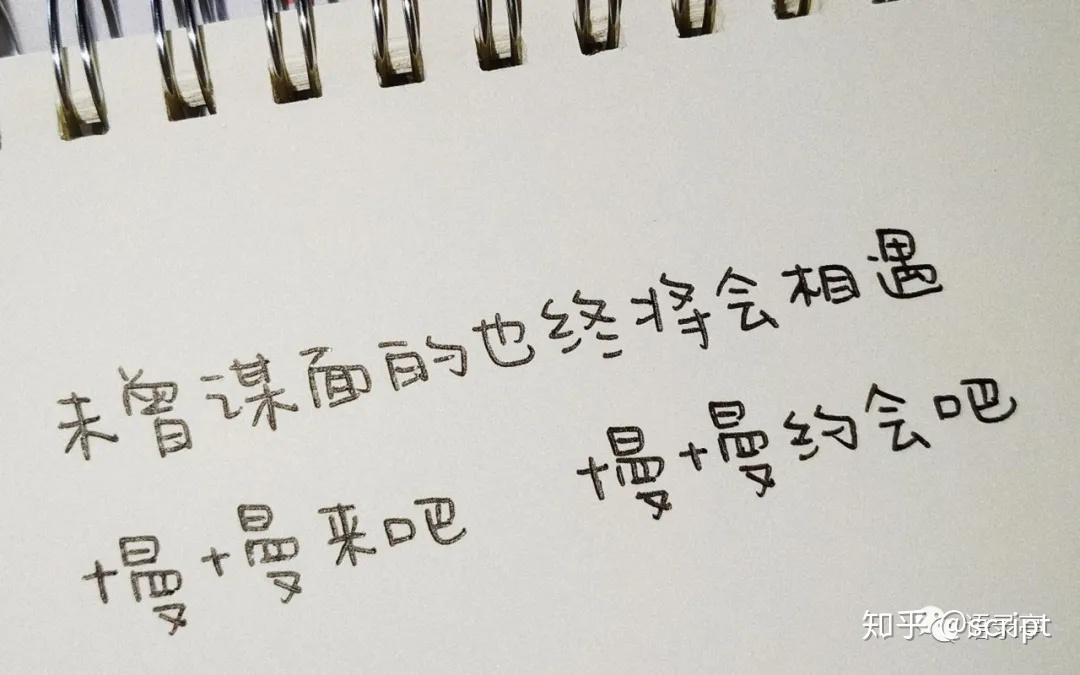 未曾谋面的也终将会相遇
慢慢来吧 慢慢约会吧
知乎 @script